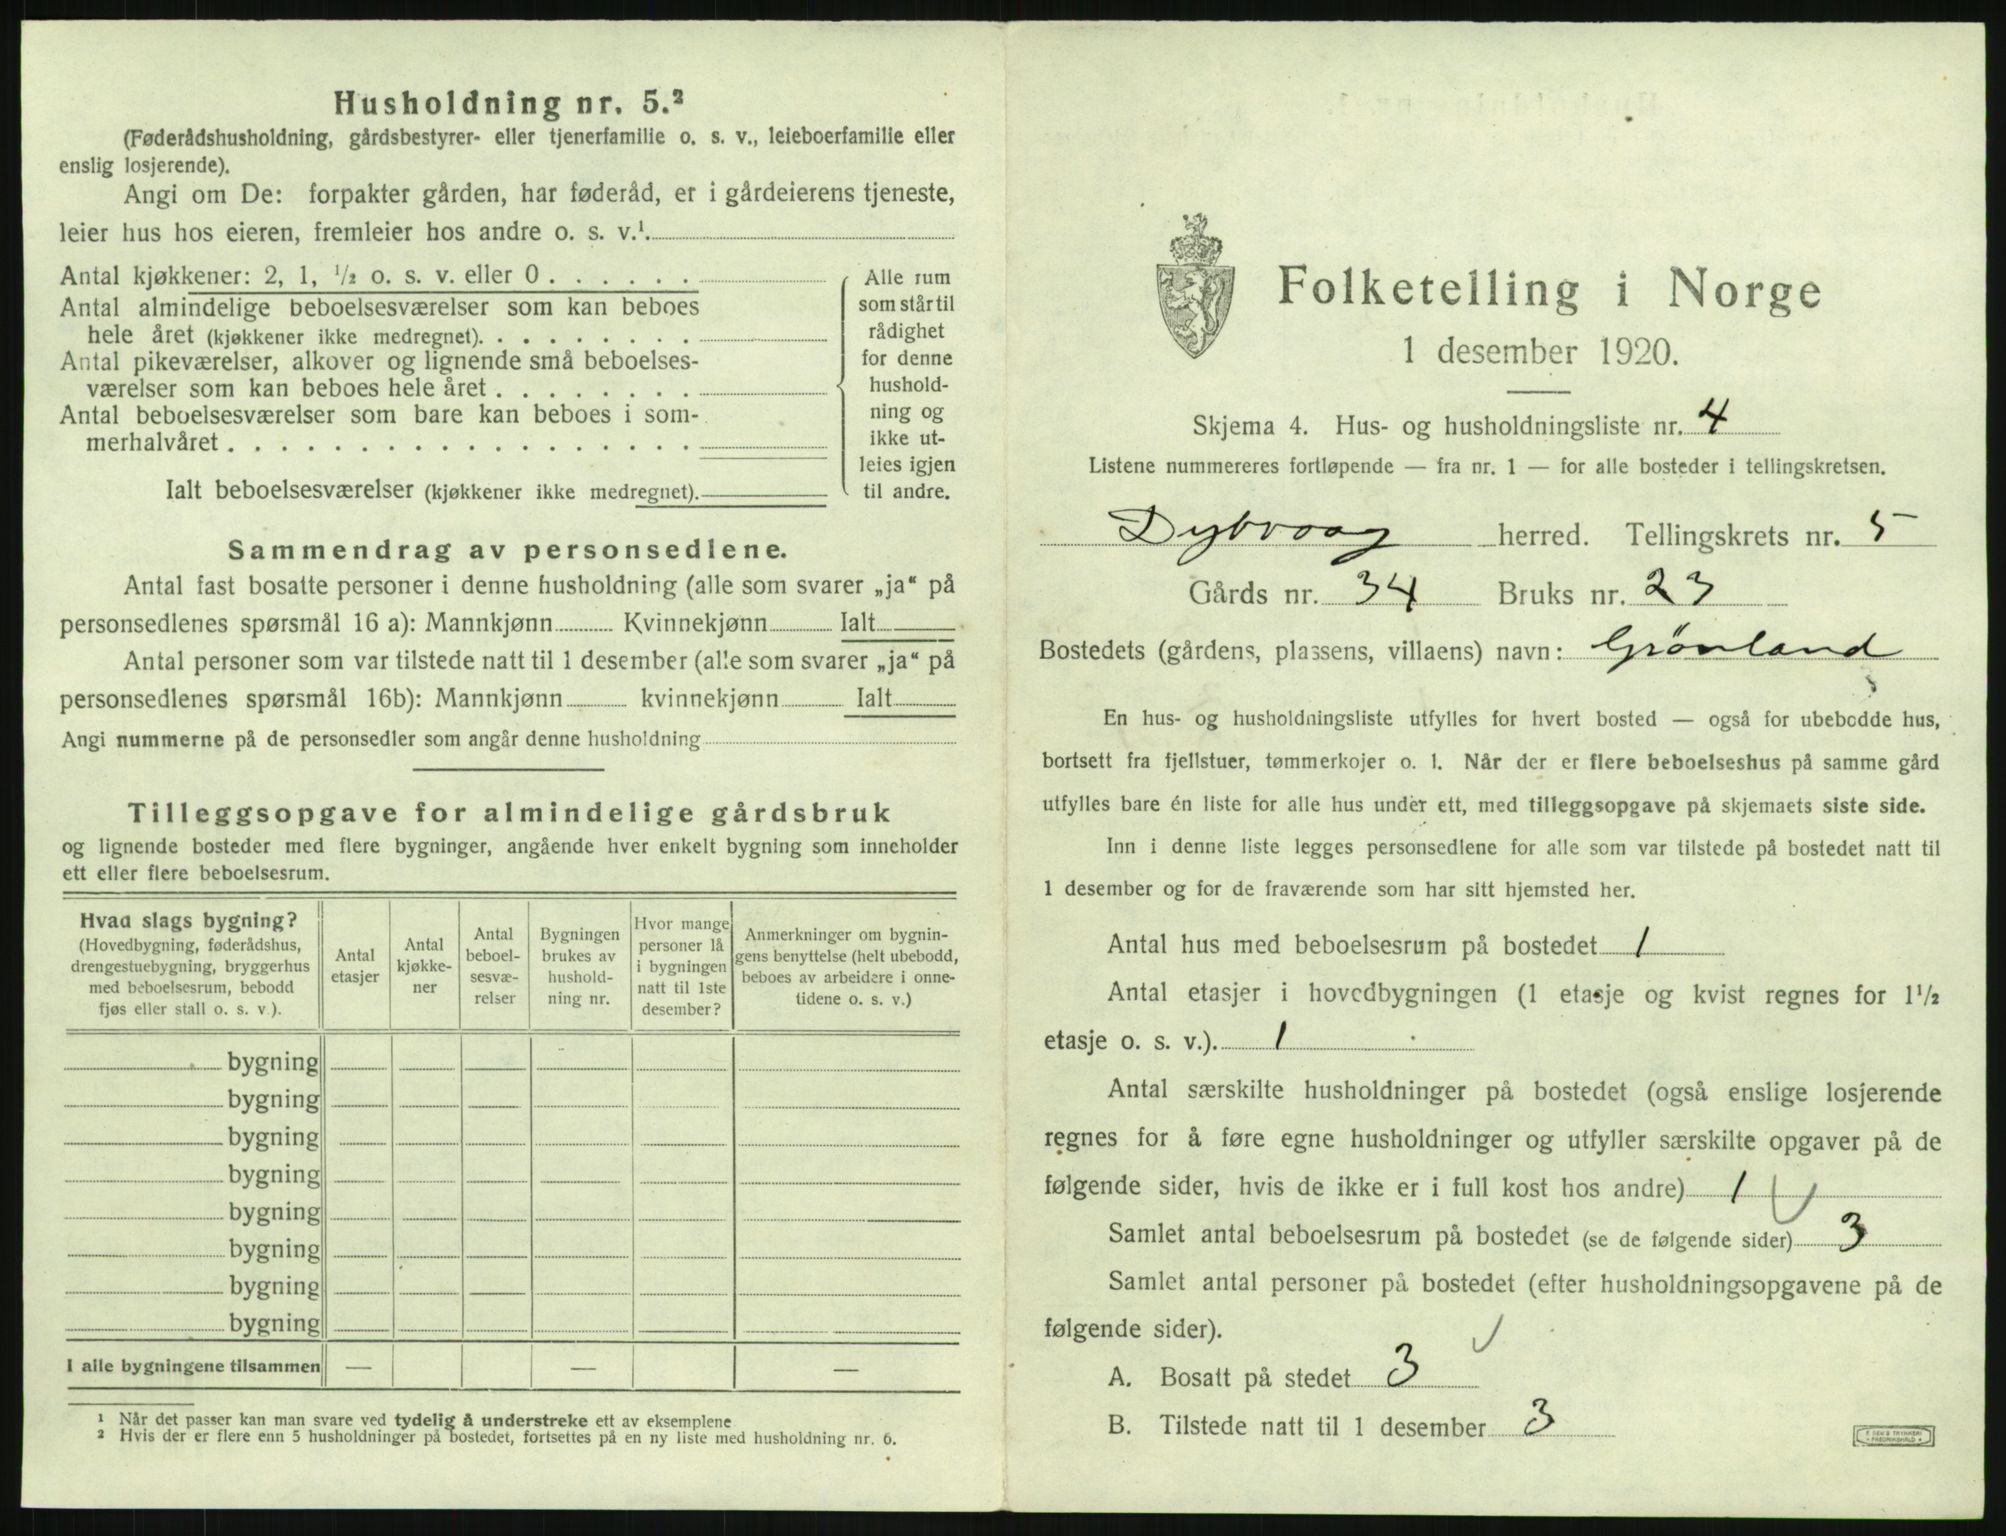 Husholdning nr. 5.²
(Føderådshusholdning, gårdsbestyrer- eller tjenerfamilie o. s. v., leieboerfamilie eller
enslig losjerende).
Angi om De: forpakter gården, har føderåd, er i gårdeierens tjeneste,
leier hus hos eieren, fremleier hos andre o. s. v.¹
Antal kjøkkener: 2, 1, ½ o. s. v. eller 0 . . . . . .
Antal almindelige beboelsesværelser som kan beboes
hele året (kjøkkener ikke medregnet). . . . . . . . .
Antal pikeværelser, alkover og lignende små beboelses-
værelser som kan beboes hele året . . . . . . . .
Antal beboelsesværelser som bare kan beboes i som-
merhalvåret . . . . . . . . . . . . . . . . . .
Ialt beboelsesværelser (kjøkkener ikke medregnet).
Alle rum
som står til
rådighet
for denne
hushold-
ning og
ikke ut-
leies igjen
til andre.
Sammendrag av personsedlene.
Antal fast bosatte personer i denne husholdning (alle som svarer „ja“ på
personsedlenes spørsmål 16 a): Mannkjønn Kvinnekjønn Ialt
Antal personer som var tilstede natt til 1 desember (alle som svarer „ja“ på
personsedlenes spørsmål 16b): Mannkjønn kvinnekjønn Ialt
Angi nummerne på de personsedler som angår denne husholdning
Tilleggsopgave for almindelige gårdsbruk
og lignende bosteder med flere bygninger, angående hver enkelt bygning som inneholder
ett eller flere beboelsesrum.
Hvad slags bygning?
(Hovedbygning, føderådshus,
drengestuebygning, bryggerhus
med beboelsesrum, bebodd
fjøs eller stall o. s. v.).
Antal
etasjer
Antal
kjøkke-
ner
Antal
beboel-
sesvæ-
relser
Bygningen
brukes av
hushold-
ning nr.
Hvor mange
personer lå
i bygningen
natt til 1ste
desember?
Anmerkninger om bygnin-
gens benyttelse (helt ubebodd,
beboes av arbeidere i onne-
tidene o. s. v.)
bygning
bygning
bygning
bygning
bygning
bygning
bygning
bygning
I alle bygningene tilsammen — — —
¹ Når det passer kan man svare ved tydelig å understreke ett av eksemplene
² Hvis der er flere enn 5 husholdninger på bostedet, fortsettes på en ny liste med husholdning nr. 6.
Folketelling i Norge
1 desember 1920.
Skjema 4. Hus- og husholdningsliste nr. 4
Listene nummereres fortløpende — fra nr. 1 — for alle bosteder i tellingskretsen.
Dybvaag herred. Tellingskrets nr. 5
Gårds nr. 34 Bruks nr. 23
Bostedets (gårdens, plassens, villaens) navn: Grönland
En hus- og husholdningsliste utfylles for hvert bosted — også for ubebodde hus,
bortsett fra fjellstuer, tømmerkojer o. l. Når der er flere beboelseshus på samme gård
utfylles bare én liste for alle hus under ett, med tilleggsopgave på skjemaets siste side.
Inn i denne liste legges personsedlene for alle som var tilstede på bostedet natt til
1 desember og for de fraværende som har sitt hjemsted her.
Antal hus med beboelsesrum på bostedet 1
Antal etasjer i hovedbygningen (1 etasje og kvist regnes for 1½
etasje o. s. v.). 1
Antal særskilte husholdninger på bostedet (også enslige losjerende
regnes for å føre egne husholdninger og utfyller særskilte opgaver på de
følgende sider, hvis de ikke er i full kost hos andre) 1
Samlet antal beboelsesrum på bostedet (se de følgende sider) 3
Samlet antal personer på bostedet (efter husholdningsopgavene på de
følgende sider).
A. Bosatt på stedet 3
B. Tilstede natt til 1 desember 3